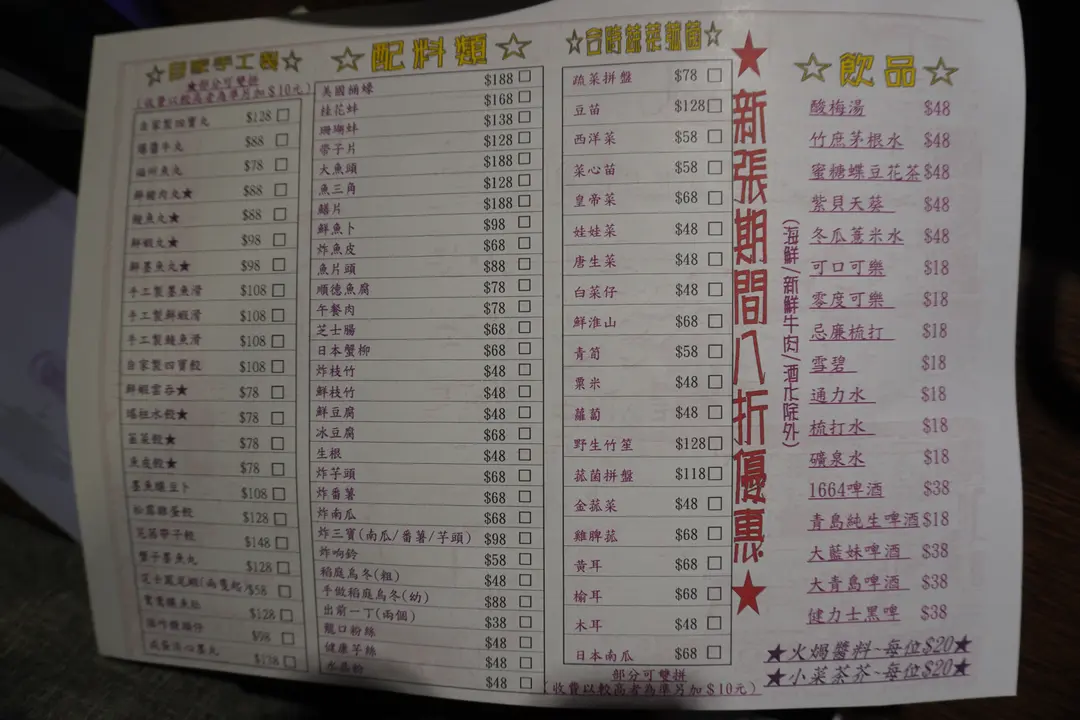 ☆手工製☆
★部分可雙拼
(收費以較高者為準另加$10元)
自家製四寶丸 $128
爆醬牛丸 $88
福州魚丸 $78
鮮豬肉丸★ $88
鯪魚丸★ $88
鮮蝦丸★ $98
鮮墨魚丸★ $98
手工製墨魚滑 $108
手工製鮮蝦滑 $108
手工製鯪魚滑 $108
自家製四寶餃 $108
鮮蝦雲吞★ $78
瑤柱水餃★ $78
韮菜餃★ $78
魚皮餃★ $78
墨魚釀豆卜 $108
松露雞蛋餃 $128
芫荽帶子餃 $148
蟹子墨魚丸 $128
芝士鳳尾蝦(兩隻起) $58
$128
$98
$138
☆配料類☆
美國桶蠔 $188
桂花蚌 $168
珊瑚蚌 $138
帶子片 $128
大魚頭 $188
魚三角 $128
鱔片 $188
鮮魚卜 $98
炸魚皮 $68
魚片頭 $88
順德魚腐 $78
午餐肉 $78
芝士腸 $68
日本蟹柳 $68
炸枝竹 $48
鮮枝竹 $48
鮮豆腐 $48
冰豆腐 $68
生根 $48
炸芋頭 $68
炸番薯 $68
炸南瓜 $68
炸三寶(南瓜/番薯/芋頭) $98
炸响鈴 $58
稻庭烏冬(粗) $48
手做稻庭烏冬(幼) $88
出前一丁(兩個) $38
龍口粉絲 $48
健康芋絲 $48
水晶粉 $48
☆合時蔬菜菰菌☆
蔬菜拼盤 $78
豆苗 $128
西洋菜 $58
菜心苗 $58
皇帝菜 $68
娃娃菜 $48
唐生菜 $48
白菜仔 $48
鮮淮山 $68
青筍 $58
粟米 $48
蘿蔔 $48
野生竹笙 $128
菰菌拼盤 $118
金菰菜 $48
雞脾菰 $68
黃耳 $68
榆耳 $68
木耳 $48
日本南瓜 $68
部分可雙拼
(收費以較高者為準另加$10元)
★新張期間八折優惠★
(海鮮/新鮮牛肉/酒水除外)
☆飲品☆
酸梅湯 $48
竹庶茅根水 $48
蜜糖蝶豆花茶 $48
紫貝天葵 $48
冬瓜薏米水 $48
可口可樂 $18
零度可樂 $18
忌廉梳打 $18
雪碧 $18
通力水 $18
梳打水 $18
礦泉水 $18
1664啤酒 $38
青島純生啤酒 $18
大藍妹啤酒 $38
大青島啤酒 $38
健力士黑啤 $38
★火焗醬料-每位$20★
★小菜茶芥-每位$20★